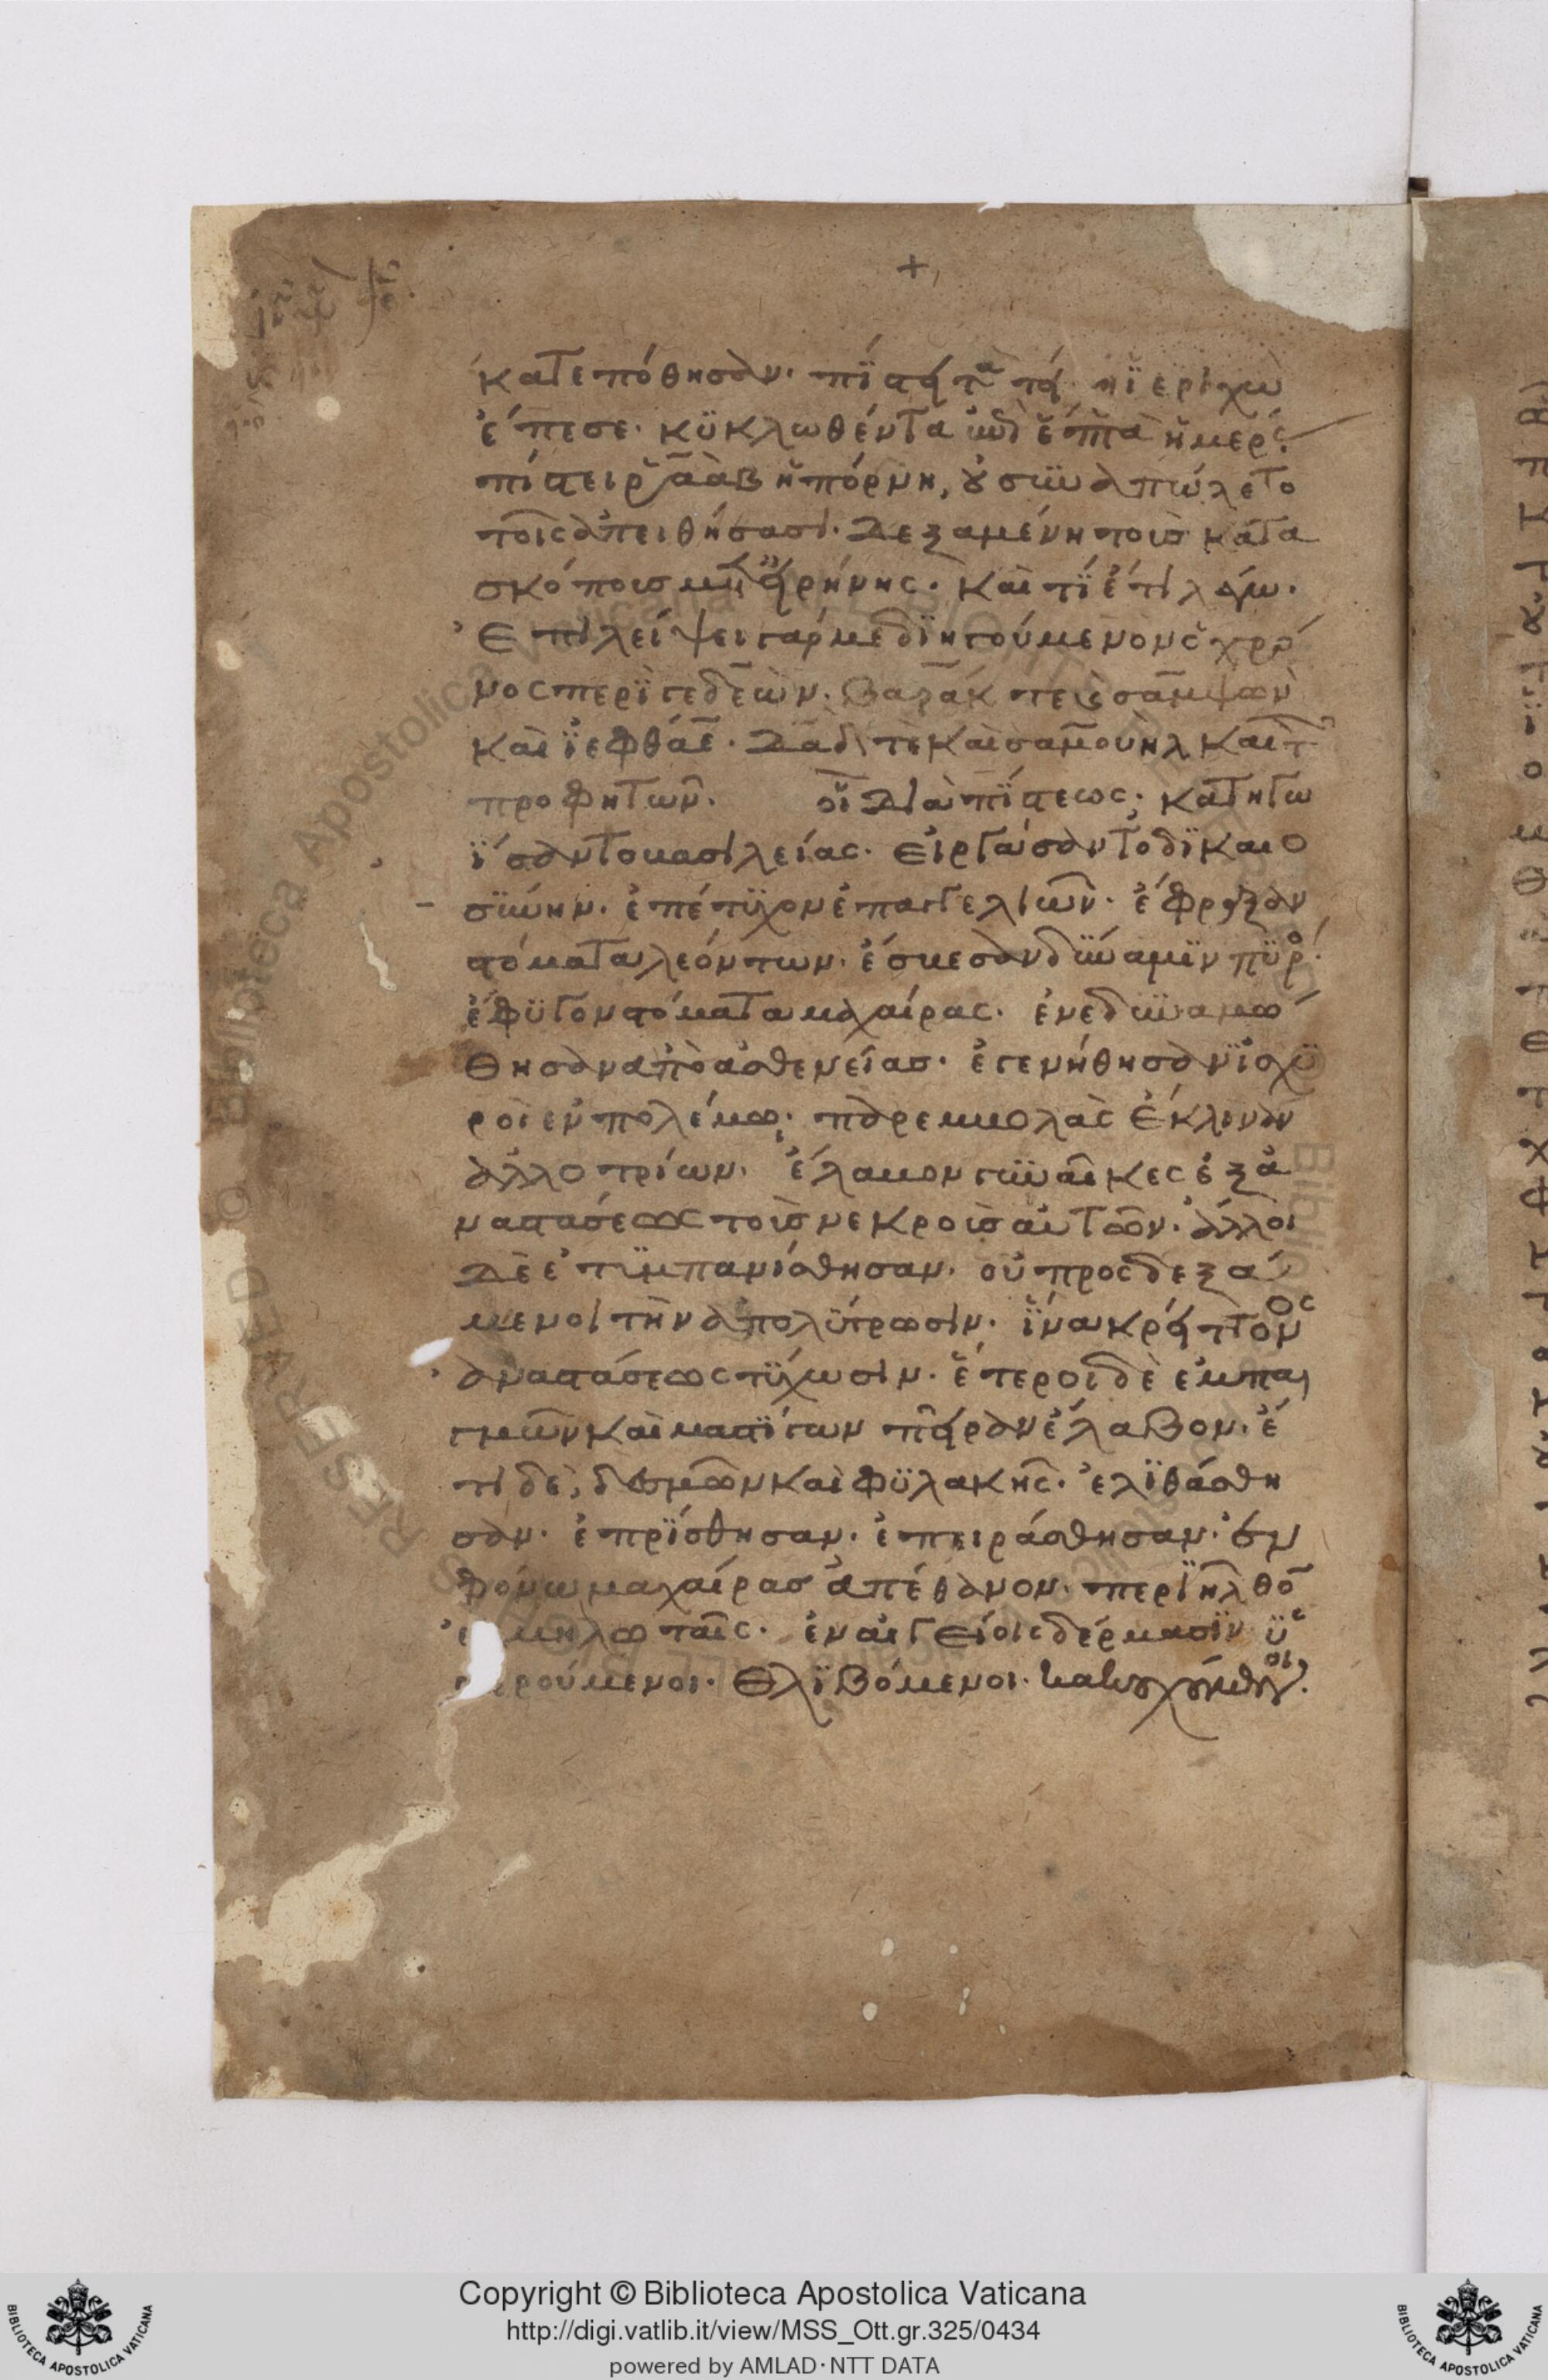 +
κατεπόθησαν. πίστει τὰ τείχη ϊεριχὼ
ἔπεσε. κϋκλωθέντα ἐπὶ ἑπτὰ ἡμέρας.
πίστει ῥαὰβ ἡ πόρνη, οὐ σϋναπώλετο
τοῖς ἀπειθήσασι. δεξαμένη τοὺς κατα
σκόπους μετ εἰρήνης. καὶ τί ἔτι λέγω.
Ἐπιλείψει γάρ με διηγούμενον ὁ χρό
νος περὶ γεδεὼν. βαρὰκ τε καὶ σαμψὼν
καὶ ϊεφθάε. δαδ τὲ καὶ σαμουὴλ καὶ τ
προφητῶν. οἳ διὰ πίστεως. κατηγω
νίσαντο βασιλείας. εἰργάσαντο δϊκαιο
σϋνην. ἐπέτϋχον ἐπαγγελιῶν. ἔφραξαν
στόματα λεόντων. ἔσβεσαν δϋναμϊν πϋρός.
ἔφϋγον στόματα μαχαίρας. ἐνεδϋναμώ
θησαν ἀπὸ ἀσθενείας. ἐγενήθησαν ϊσχϋ
ροὶ ἐν πολέμω. παρεμβολὰς ἔκλιναν
ἀλλοτρίων. ἔλαβον γϋναῖκες ἐξ ἀ
ναστάσεως τοὺς νεκροὺς αὐτῶν. ἄλλοι
δὲ ἐτϋμπανίσθησαν. οὐ προςδεξά
μενοι τὴν ἀπολύτρωσιν. ἵνα κρείττονος
ἀναστάσεως τϋχωσιν. ἕτεροι δὲ ἐμπαι
γμῶν καὶ μαστίγων πεῖραν ἔλαβον. ἔ
τι δὲ, δεσμῶν καὶ φϋλακῆς. ἐλϊθάσθη
σαν. ἐπρϊσθησαν. ἐπειράσθησαν. ἐν
φόνω μαχαίρας ἀπέθανον. περϊῆλθο
μηλωταῖς. ἐν αἰγείοις δέρμασϊν ϋσ
ρούμενοι. θλϊβόμενοι. κακουχούμενοι.
Copyright © Biblioteca Apostolica Vaticana
http://digi.vatlib.it/view/MSS_Ott.gr.325/0434
powered by AMLAD·NTT DATA